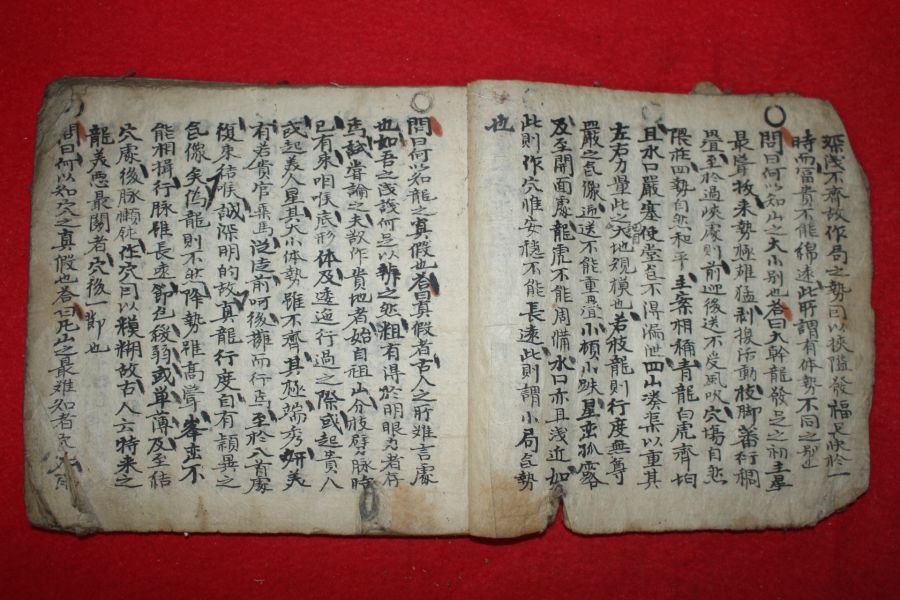 不齊故作局之勢可以狹隘發福又快於一
時而富貴不能綿遠此所謂有体勢不同之別也
問曰何以知山之大小別也答曰大幹龍發足之初主星
最聳枚來勢極雄猛剝換活動枝脚蕃行稠
疊至於過峽處則前迎後送不受風吹穴塲自然
四勢自然和平主案相稱青龍白虎齊均
且水口嚴塞使堂气不得漏泄四山湊集以重其
左右力量此謂之大地規模也若枝龍則行度無尊
嚴之气像迎送不能重疊小頓小跌星峦孤露
及至開面處龍虎不能周備水口亦且淺近如
此則作穴惟安穩不能長遠此則謂小局气勢
也
問曰何以知龍之真假也答曰真假者古人之所難言處
也如吾之淺識何足以辨之然粗有得於明眼力者存
焉試嘗論之夫欲作貴地者始自祖山分肢劈脉時
已有來咽喉底形体及逶迤行過之際或起貴人
或起美人星其大小体勢雖不齊其極端秀妍美
有若貴官乘馬前呵後擁而行焉至於入首處
復束結喉誠深明的故真龍行度自有穎異之
气像矣偽龍則不然降勢雖高聳峯峦不
能相揖行脉雖長遠節包緩弱或单薄及至結
穴處後脉懶鈍作穴可以糢糊故古人云特來之
龍美惡最関者穴後一節也
問曰何以知穴之真假也答曰凡山之最難知者